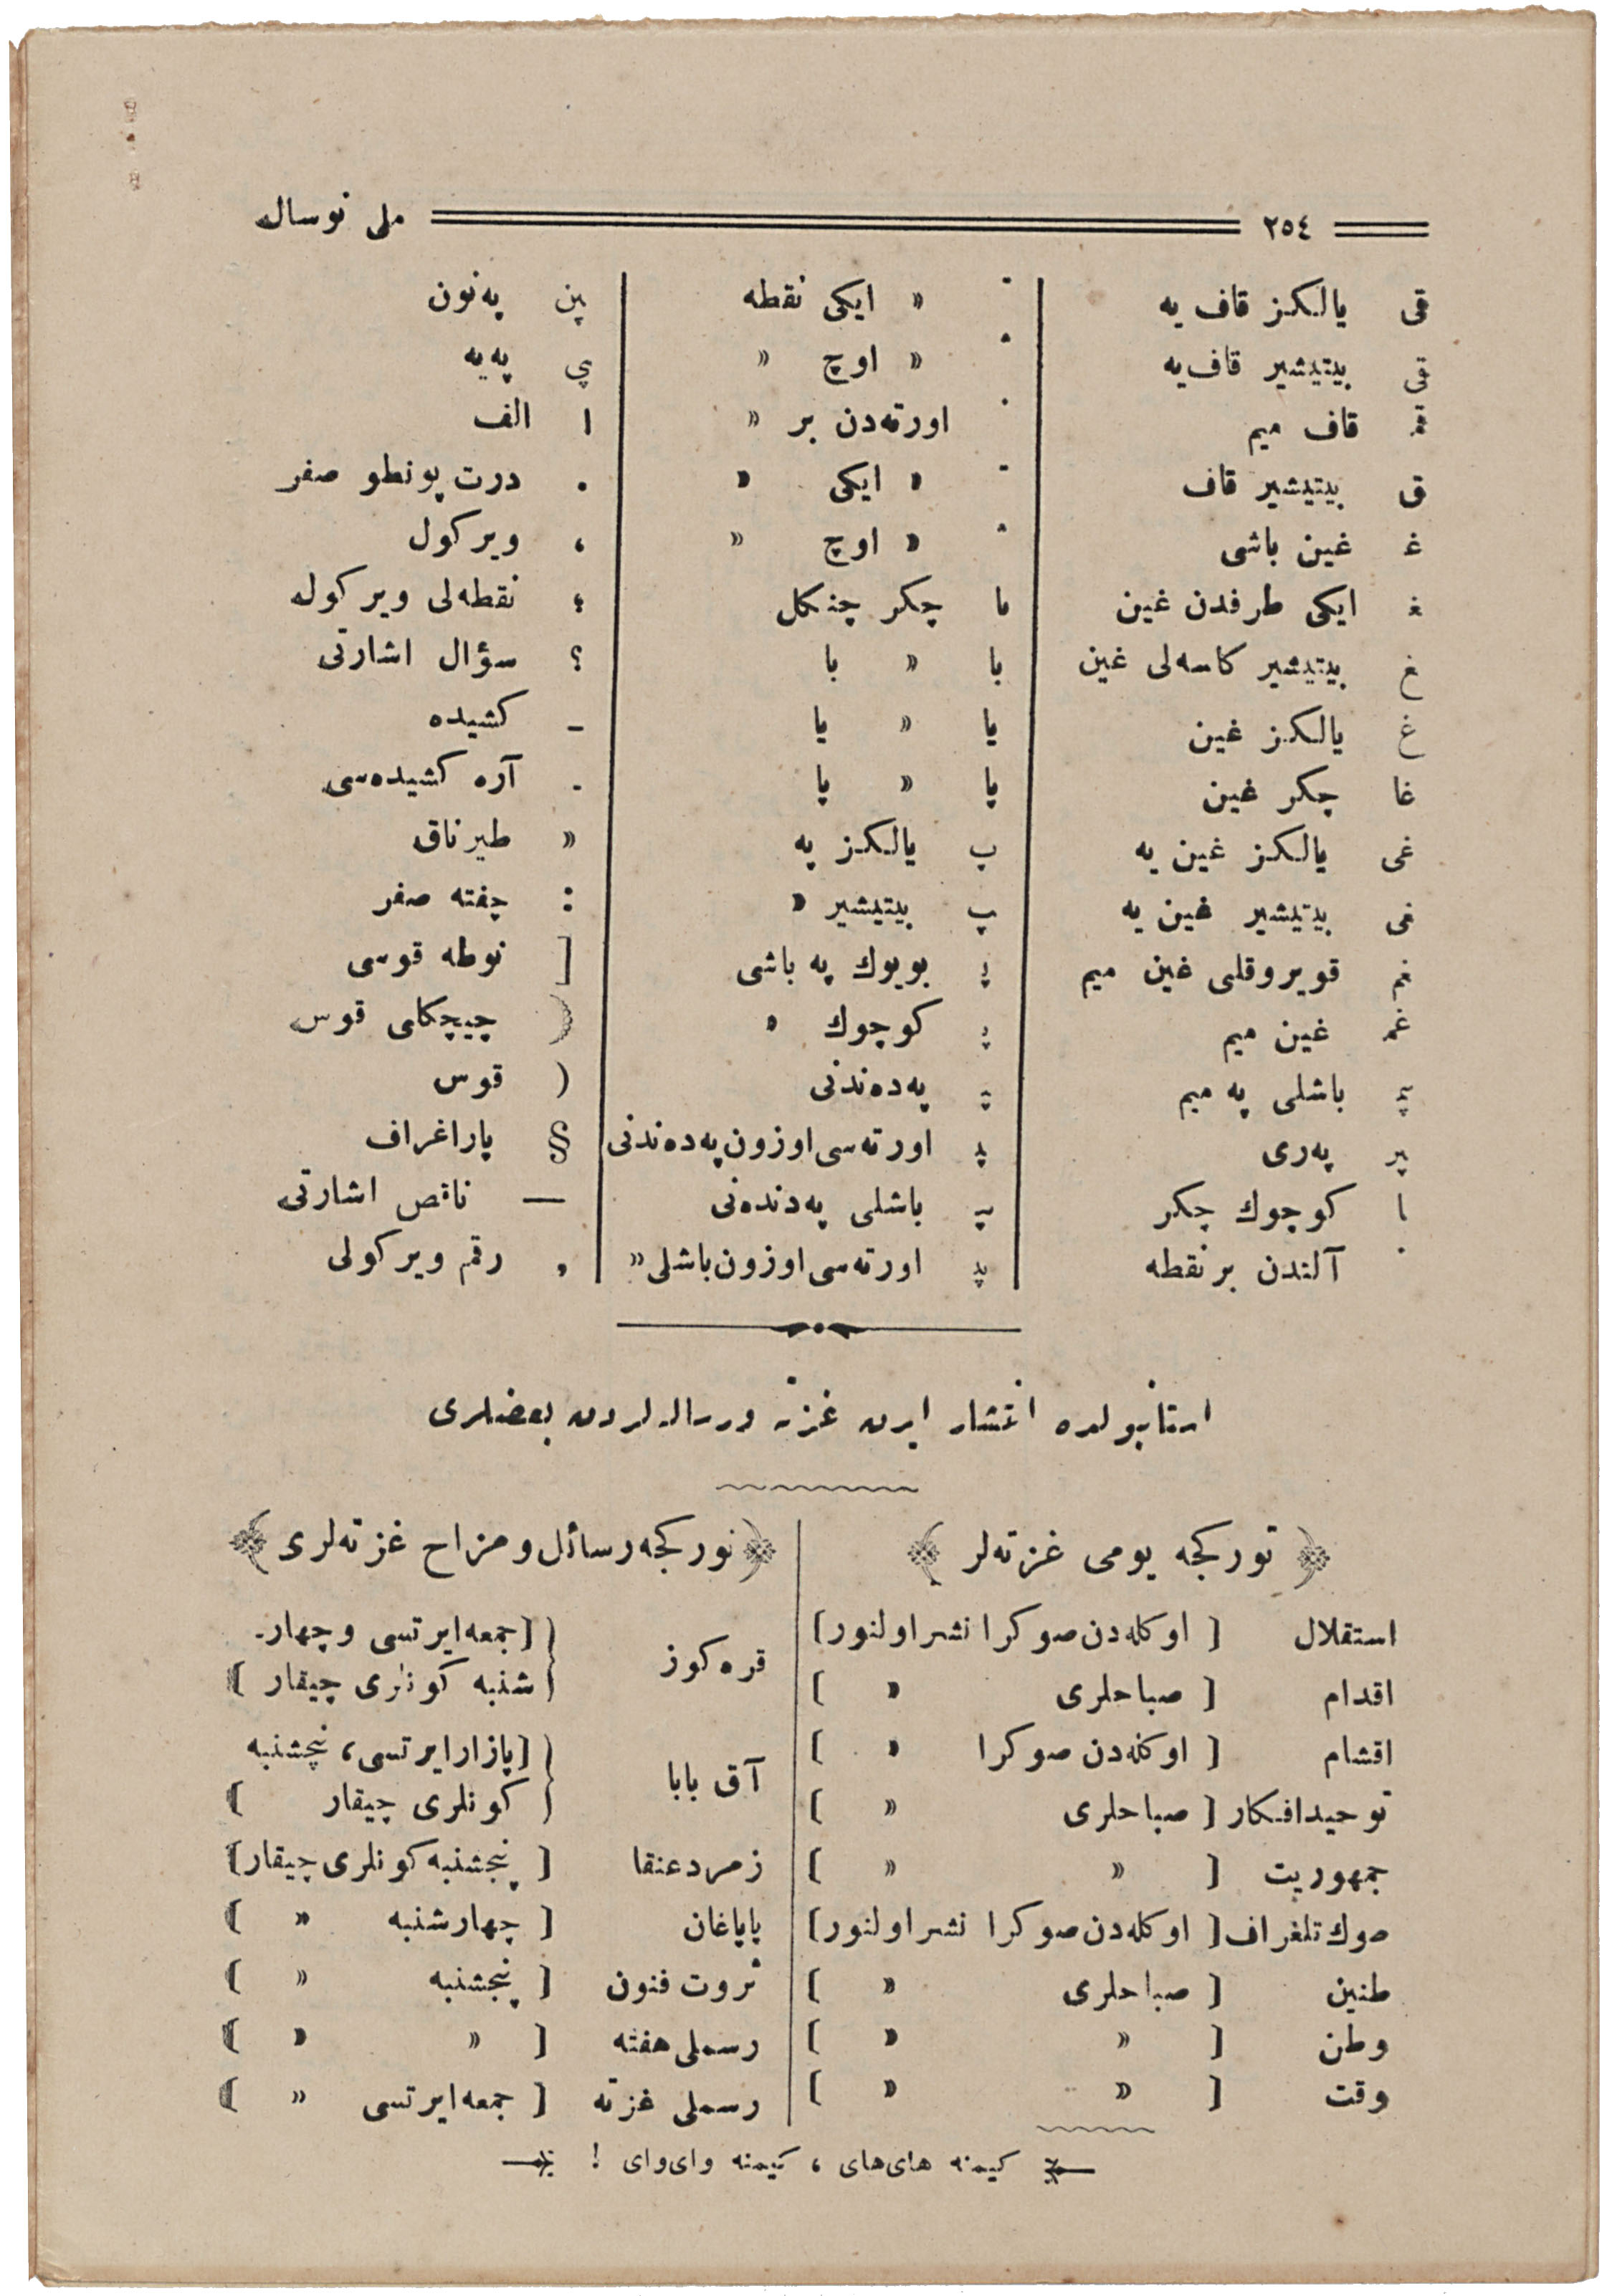 ٢٥٤ ملی نوسال
قی یالکز قاف یه
قی بیتیشیر قاف‌یه
قم قاف میم
ق بیتیشیر قاف
غ غین باشی
غ ایکی طرفدن غین
غ بیتیشیر کاسه‌لی غین
غ یالکز غین
غا چکر غین
غی یالکز غین یه
غی بیتیشیر غین یه
غم قویروقلی غین میم
غم غین میم
پم باشلی په میم
پر په‌ری
ا کوچوك چکر
آلتدن بر نقطه
« ایکی نقطه
« اوچ «
اورته‌دن بر «
« ایکی «
« اوچ «
ما چکر چنکل
با « با
یا « یا
پا « پا
پ یالکز په
پ بیتیشیر «
پ بویوك په باشی
پ کوچوك «
په‌ده‌ندنی
پ اورته‌سی اوزون په‌ده‌ندنی
پ باشلی په‌دنده‌نی
پ اورته‌سی اوزون باشلی «
پن په‌نون
پی په‌یه
ا الف
. درت پونطو صفر
، ویرکول
؛ نقطه‌لی ویرکول
؟ سؤال اشارتی
ـ کشیده
- آره کشیده‌سی
« طیرناق
: چفته صفر
[ نوطه قوسی
( چیچکلی قوس
( قوس
§ پاراغراف
— ناقص اشارتی
, رقم ویرکولی
استانبولده انتشار ایدن غزته و رساله‌لردن بعضلری
﴿ تورکجه یومی غزته‌لر ﴾
استقلال [ اوکله‌دن صوکرا نشر اولنور ]
اقدام [ صباحلری « ]
اقشام [ اوکله‌دن صوکرا « ]
توحید افکار [ صباحلری « ]
جمهوریت [ « « ]
صوك تلغراف [ اوکله‌دن صوکرا نشر اولنور ]
طنین [ صباحلری « ]
وطن [ « « ]
وقت [ « « ]
﴿ تورکجه رسائل و مزاح غزته‌لری ﴾
قره‌کوز [ جمعه‌ایرتسی و چهار-
شنبه کونلری چیقار ]
آق بابا [ پازارایرتسی، پنجشنبه
کونلری چیقار ]
زمرد عنقا [ پنجشنبه کونلری چیقار ]
پاپاغان [ چهارشنبه « ]
ثروت فنون [ پنجشنبه « ]
رسملی هفته [ « « ]
رسملی غزته [ جمعه‌ایرتسی « ]
کیمنه های‌های ، کیمنه وای‌وای !